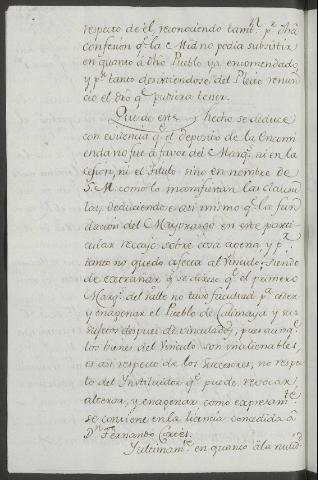 respecto de él, reconociendo tambⁿ pʳ dhā
confesion qᵉ la Mrd no podia subsistir
en quanto á dho Pueblo ya encomendado
y pʳ tanto desistiendose del Pleito renun
ció el dro qᵉ pudiera tener.
Que de este hecho se deduce
con evidencia qᵉ el deposito de la Encomi
enda no fue á favor del Marqˢ ni en la
cesion, ni el titulo sino en nombre de
S.M. como lo manifiestan las clausu
las, deduciendose asi mismo qᵉ la fun
dacion del Mayorazgo en este parti
cular recayó sobre cosa agena, y pʳ
tanto no quedó afecta al Vinculo, siendo
de extrañar qᵉ se dixese qᵉ el primero
Marqˢ del Valle no tubo facultad pᵃ ceder
y enagenar el Pueblo de Calimaya y sus
Sugetos despues de vinculados, pues aunqᵉ
los bienes del Vinculo son inalienables,
es asi respecto de los Succesores, no respᵗᵒ
del Instituidor qᵉ puede revocar,
alterar, y enagenar como expresamᵗᵉ
se contiene en la licencia concedida á
Dⁿ Fernando Cortés.
Y ultimamᵗᵉ en quanto á la nulid